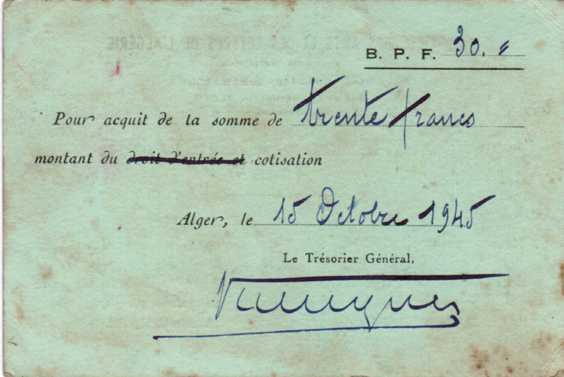 B. P. F. 30. "
Pour acquit de la somme de trente francs
montant du droit d'entrée et cotisation
Alger, le 15 Octobre 1945
Le Trésorier Général,